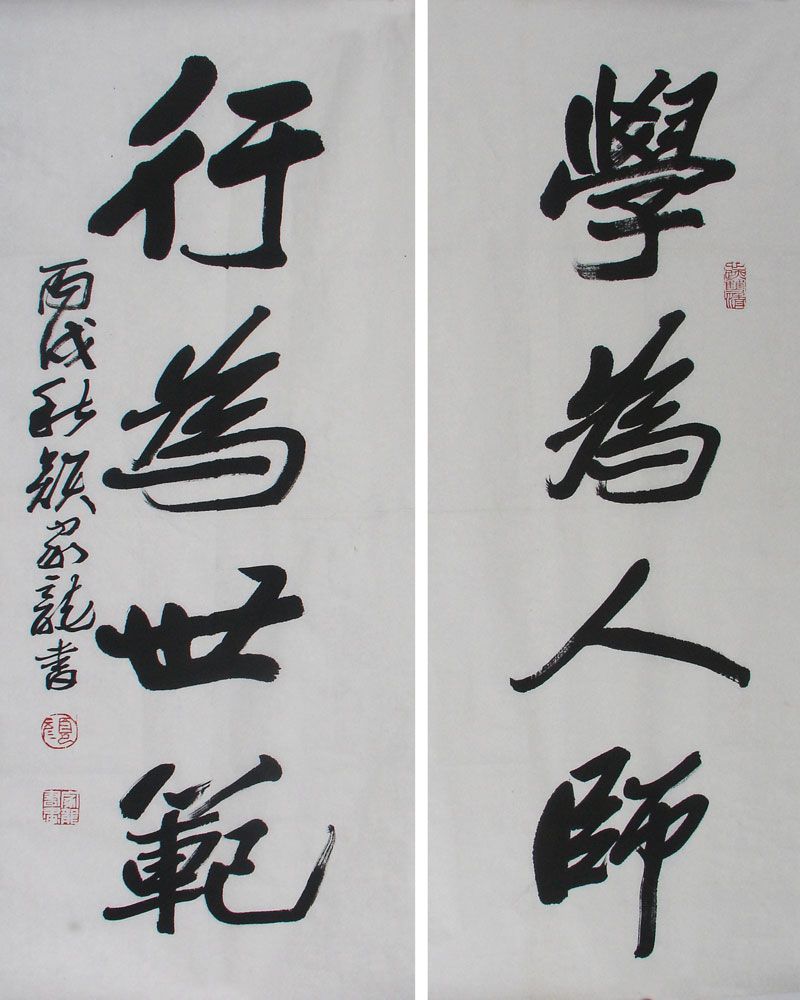 學為人師
行為世範
丙戌秋顏家龍書